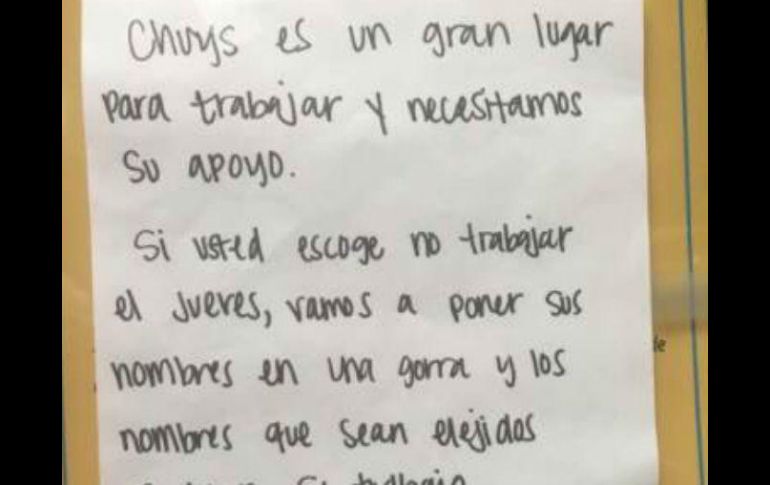 Chuys es un gran lugar
para trabajar y necesitamos
su apoyo.
Si usted escoge no trabajar
el Jueves, vamos a poner sus
nombres en una gorra y los
nombres que sean elejidos
su trabajo